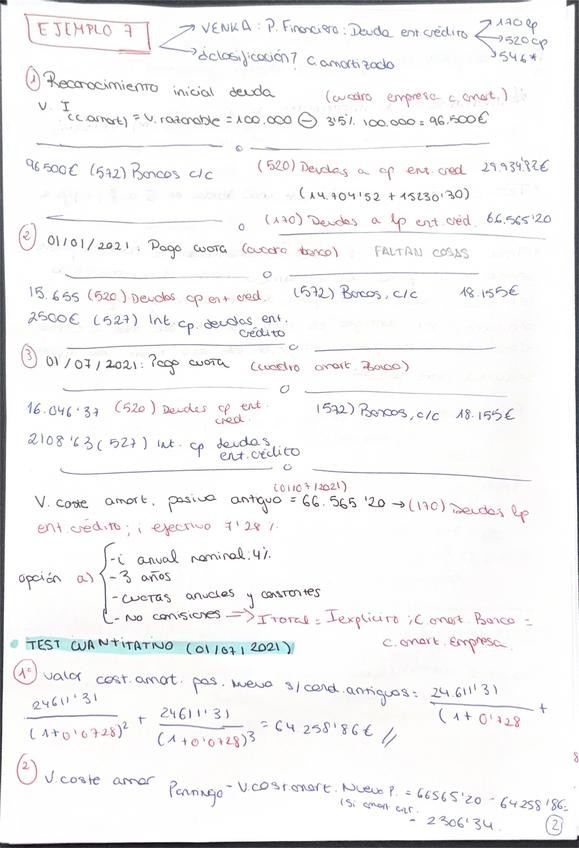 EJEMPLO 7
VENKA: P. Financiero: Deuda ent crédito
170 lp
520 cp
546*
¿clasificación? C amortizado
① Reconocimiento inicial deuda (cuadro empresa c. amort.)
V. I (C. amort) = V. razonable = 100.000 ⊖ 3'5% 100.000 = 96.500€
96500€ (572) Bancos c/c (520) Deudas a cp ent. cred 29.934'82€
(14.704'52 + 15230'30)
(170) Deudas a lp ent. créd. 66.565'20
② 01/01/2021: Pago cuota (cuadro banco) FALTAN COSAS
15.655 (520) Deudas cp ent. cred. (572) Bancos, c/c 18.155€
2500€ (527) Int. cp. deudas ent. crédito
③ 01/07/2021: Pago cuota (cuadro amort. Banco)
16.046'37 (520) Deudas cp ent. cred. (572) Bancos, c/c 18.155€
2108'63 (527) Int. cp deudas ent. crédito
(01/07/2021)
V. coste amort. pasivo antiguo = 66.565'20 → (170) Deudas lp
ent. crédito; i efectivo 7'28%
opción a)
- i anual nominal: 4%
- 3 años
- cuotas anuales y constantes
- No comisiones ⇒ I total = I explícito; C amort. Banco =
c. amort. empresa.
• TEST CUANTITATIVO (01/07/2021)
1º valor cost. amort. pas. nuevo s/cond. antiguas = 24611'31 / (1+0'0728) +
24611'31 / (1+0'0728)² + 24611'31 / (1+0'0728)³ = 64 258'86€ //
② V. coste amor P antiguo - V. cost. amort. Nuevo P. = 66565'20 - 64258'86 =
= 2306'34.
②
8